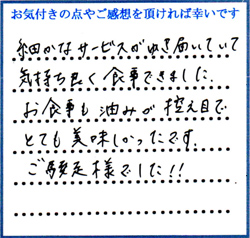 お気付きの点やご感想を頂ければ幸いです
細かなサービスがゆき届いていて
気持ち良く食事できました。
お食事も油みが控え目で
とても美味しかったです。
ご馳走様でした!!